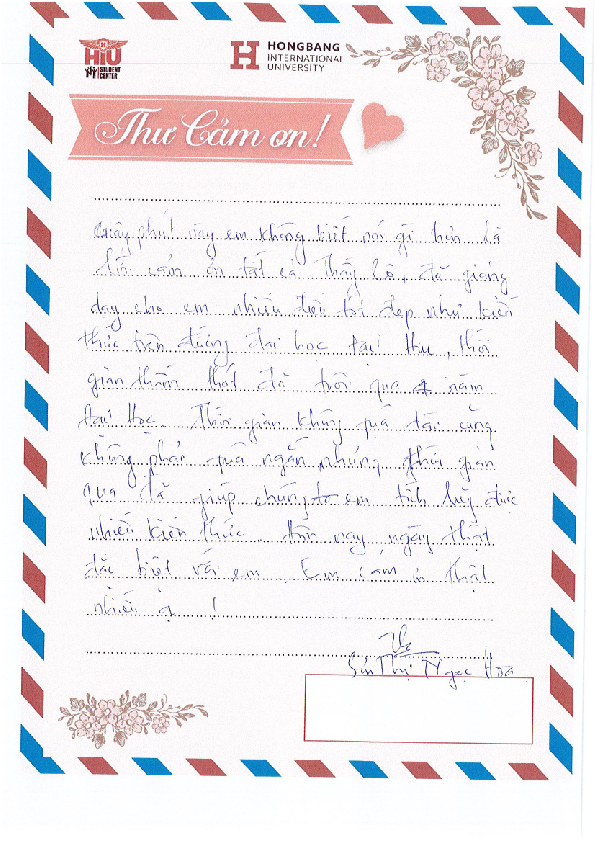 HIU
STUDENT
CENTER
HONGBANG
INTERNATIONAL
UNIVERSITY
Thư Cảm ơn!
Giây phút này em không biết nói gì hơn là
cảm ơn tất cả Thầy Cô, đã giảng
dạy cho em nhiều điều tốt đẹp như kiến
thức trên đường đại học, thời
gian thấm thoát đã trôi qua 4 năm
Đại Học. Thời gian không quá dài cũng
không phải quá ngắn, nhưng thời gian
qua đã giúp chúng em tích luỹ được
nhiều kiến thức. Hôm nay ngày thật
đặc biệt với em. Em cám ơn thật
nhiều ạ !
Thị Ngọc